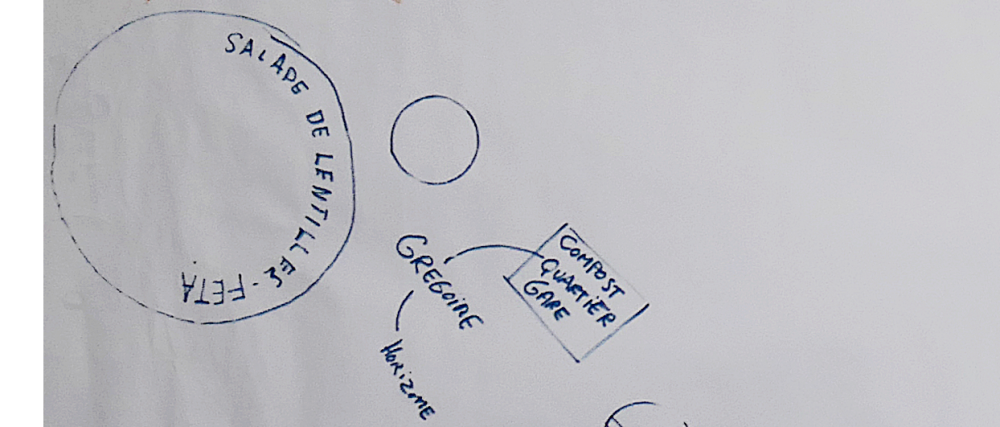 SALADE DE LENTILLES-FETA
GREGOIRE
HORIZOME
COMPOST
QUARTIER
GARE